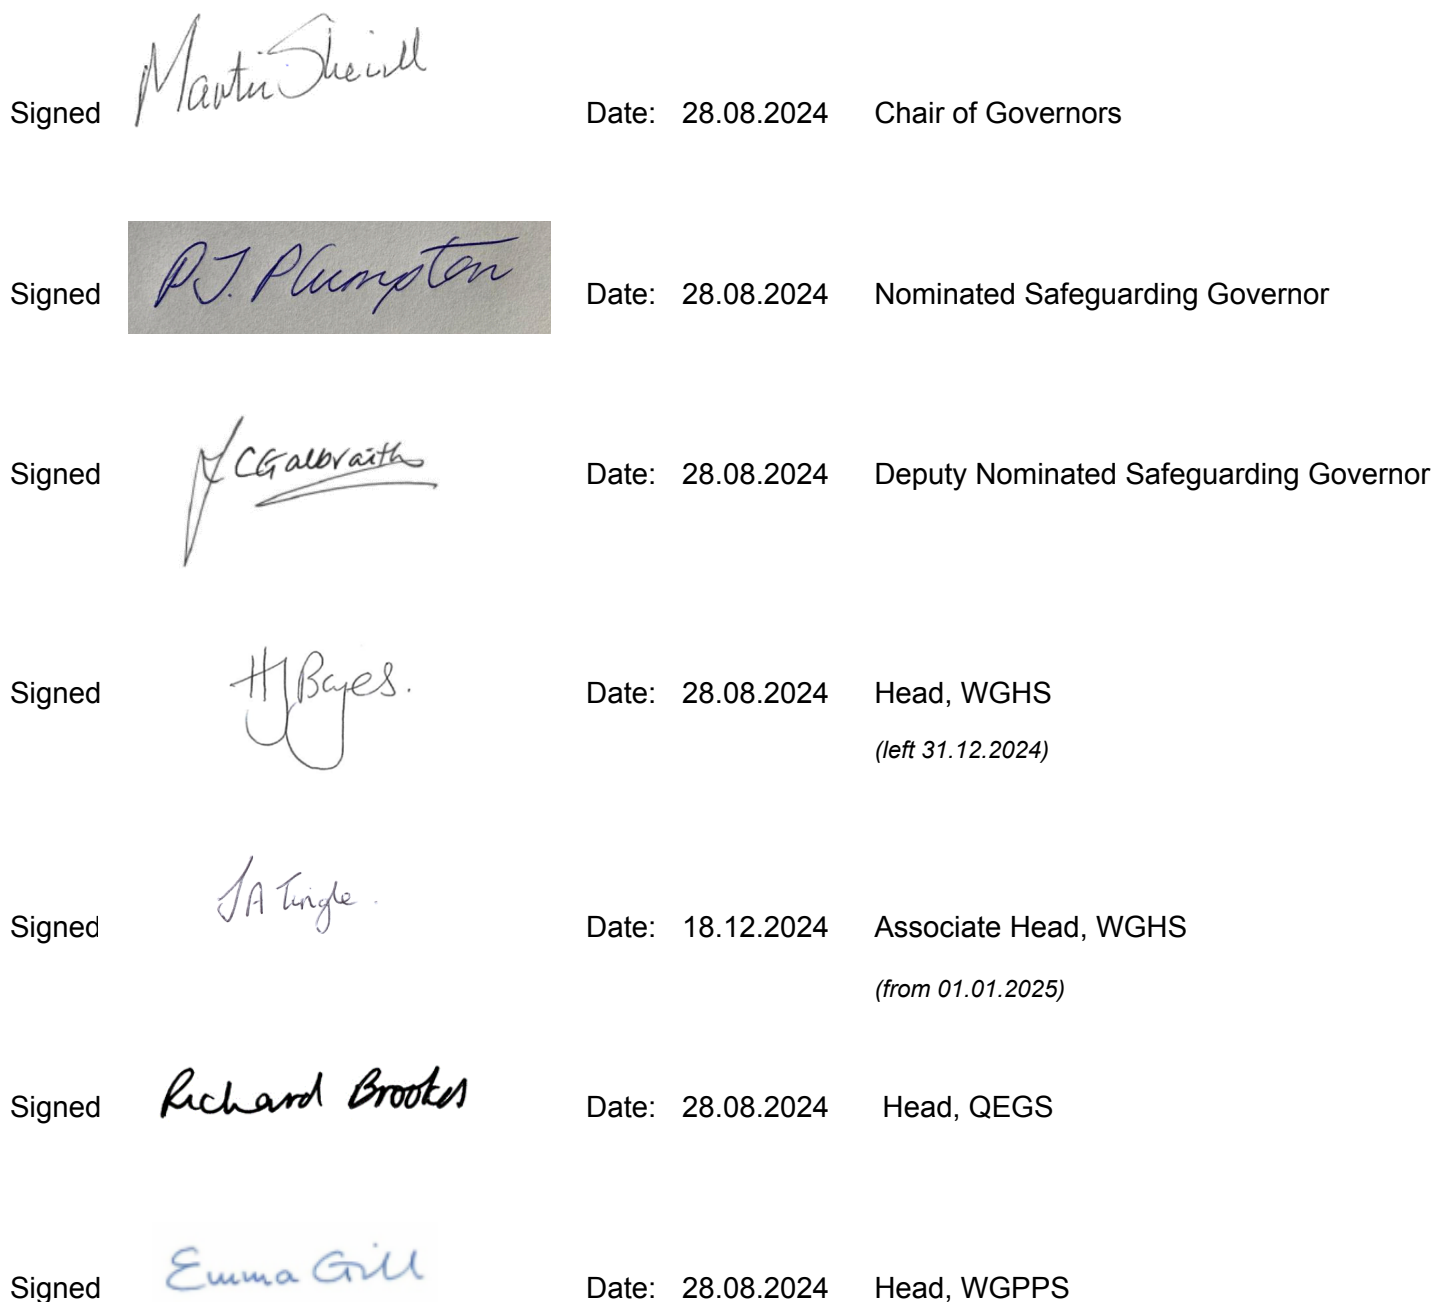 Signed Martin Shevill Date: 28.08.2024 Chair of Governors
Signed P.J. Plumpton Date: 28.08.2024 Nominated Safeguarding Governor
Signed J C Galbraith Date: 28.08.2024 Deputy Nominated Safeguarding Governor
Signed HJBayes. Date: 28.08.2024 Head, WGHS
(left 31.12.2024)
Signed J A Tingle. Date: 18.12.2024 Associate Head, WGHS
(from 01.01.2025)
Signed Richard Brookes Date: 28.08.2024 Head, QEGS
Signed Emma Gill Date: 28.08.2024 Head, WGPPS